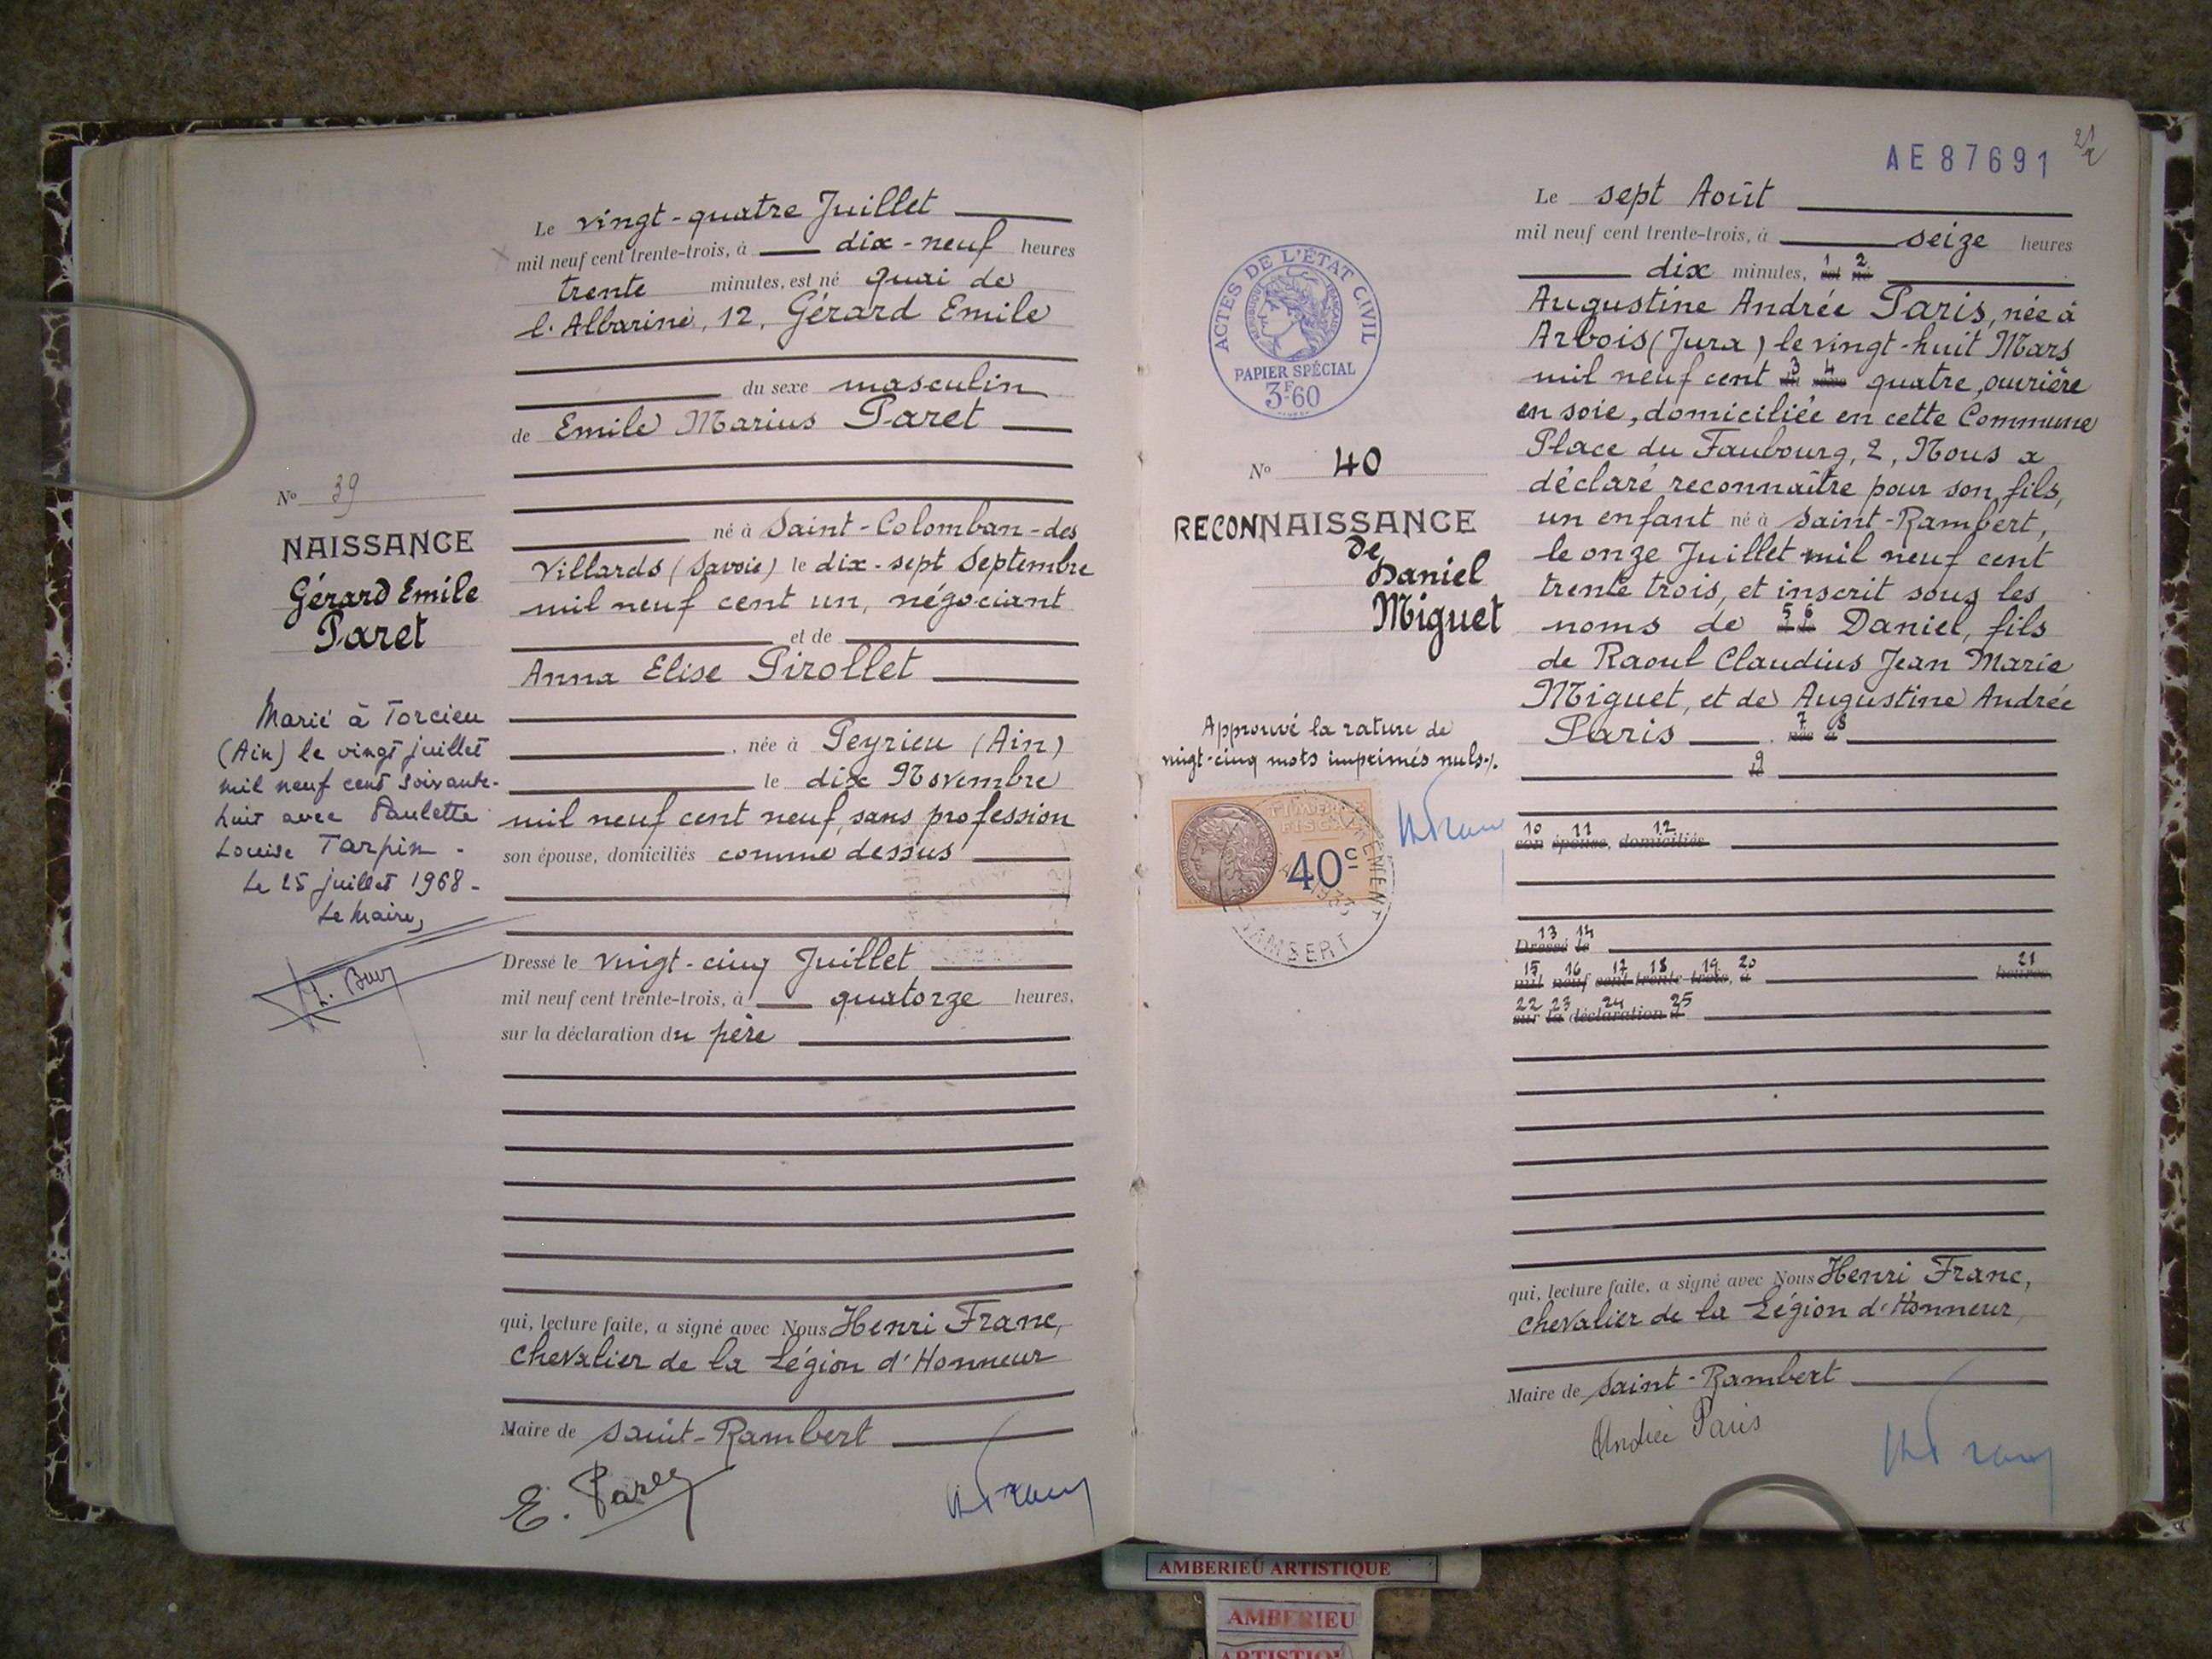 Le vingt-quatre Juillet
mil neuf cent trente-trois, à dix-neuf heures
trente minutes, est né quai de
l'Albarine, 12, Gérard Emile
du sexe masculin
de Emile Marius Paret
né à Saint-Colomban-des
Villards (Savoie) le dix-sept Septembre
mil neuf cent un, négociant
et de
Anna Elise Pirollet
, née à Peyrieu (Ain)
le dix Novembre
mil neuf cent neuf, sans profession
son épouse, domiciliés comme dessus
Dressé le vingt-cinq Juillet
mil neuf cent trente-trois, à quatorze heures,
sur la déclaration du père
qui, lecture faite, a signé avec Nous Henri Franc,
Chevalier de la Légion d'Honneur
Maire de Saint-Rambert
E. Paret
No 39
NAISSANCE
Gérard Emile
Paret
Marié à Torcieu
(Ain) le vingt juillet
mil neuf cent soixante-
huit avec Paulette
Louise Tarpin -
Le 25 juillet 1968 -
Le Maire,
AE87691
Le sept Août
mil neuf cent trente-trois, à seize heures
dix minutes, 1 est 2 né
Augustine Andrée Paris, née à
Arbois (Jura) le vingt-huit Mars
mil neuf cent 3 4 quatre, ouvrière
en soie, domiciliée en cette Commune
Place du Faubourg, 2, Nous a
déclaré reconnaître pour son fils,
un enfant né à Saint-Rambert,
le onze Juillet mil neuf cent
trente trois, et inscrit sous les
noms de 5 6 Daniel, fils
de Raoul Claudius Jean Marie
Miguet, et de Augustine Andrée
Paris . 7 née 8 à
9 le
10 son 11 épouse, 12 domiciliés
13 Dressé 14 le
15 mil 16 neuf 17 cent 18 trente-19 trois, 20 à 21 heures,
22 sur 23 la 24 déclaration 25 d
qui, lecture faite, a signé avec Nous Henri Franc,
Chevalier de la Légion d'Honneur,
Maire de Saint-Rambert
Andrée Paris
ACTES DE L'ÉTAT CIVIL
RÉPUBLIQUE FRANÇAISE
PAPIER SPÉCIAL
3F60
No 40
RECONNAISSANCE
de
Daniel
Miguet
Approuvé la rature de
vingt-cinq mots imprimés nuls.
TIMBRE
FISCAL
40c
AMBERIEU ARTISTIQUE
AMBERIEU
ARTISTIQU